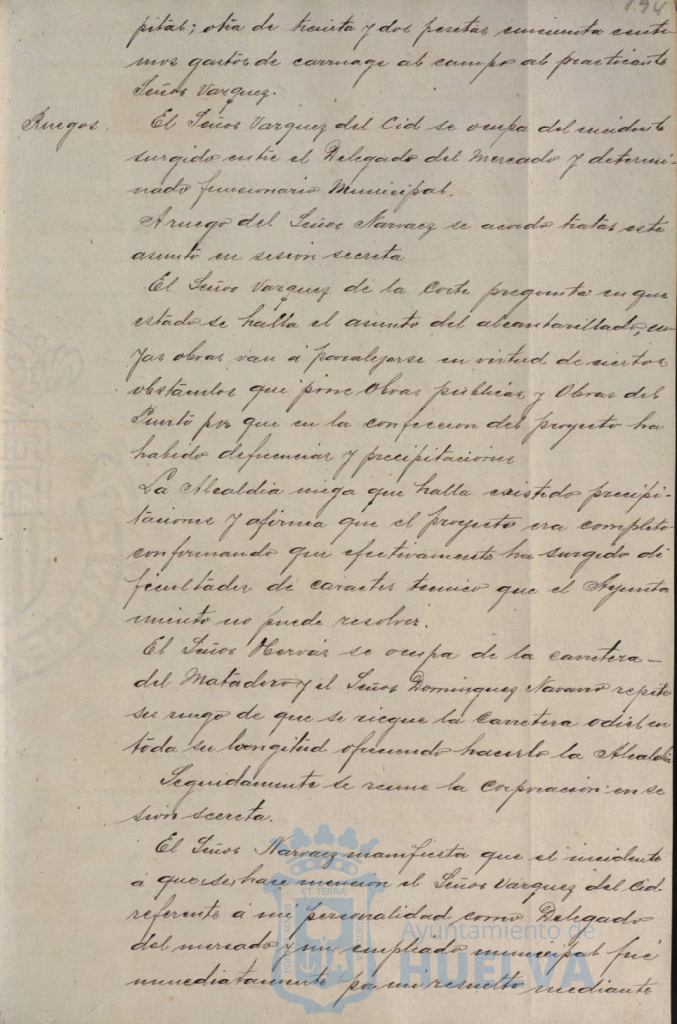 194
pital; otra de treinta y dos pesetas cincuenta centi
mos gastos de carruage al campo al practicante
Señor Vazquez.
Ruegos. El Señor Vazquez del Cid se ocupa del incidente
surgido entre el Delegado del Mercado y determi-
nado funcionario Municipal.
A ruego del Señor Narvaez se acordo tratar este
asunto en sesion secreta
El Señor Vazquez de la Corte pregunta en que
estado se halla el asunto del alcantarillado, cu
yas obras van á paralizarse en virtud de ciertos
obstáculos que pone Obras públicas y Obras del
Puerto por que en la confeccion del proyecto ha
habido deficiencias y precipitaciones
La Alcaldia niega que halla existido precipi-
taciones y afirma que el proyecto era completo
conformando que efectivamente ha surgido di
ficultades de caracter tecnico que el Ayunta
miento no puede resolver.
El Señor Hervás se ocupa de la carretera-
del Matadero y el Señor Dominguez Navarro repite
su ruego de que se riegue la Carretera Odiel en
toda su longitud ofreciendo hacerlo la Alcaldia
Seguidamente se reune la Corporacion en se
sion secreta.
El Señor Narvaez manifiesta que el incidente
á que se hace mencion el Señor Vazquez del Cid
referente á mi personalidad como Delegado
del mercado y un empleado municipal fué
inmediatamente por mi resuelto mediante
Ayuntamiento de
HUELVA